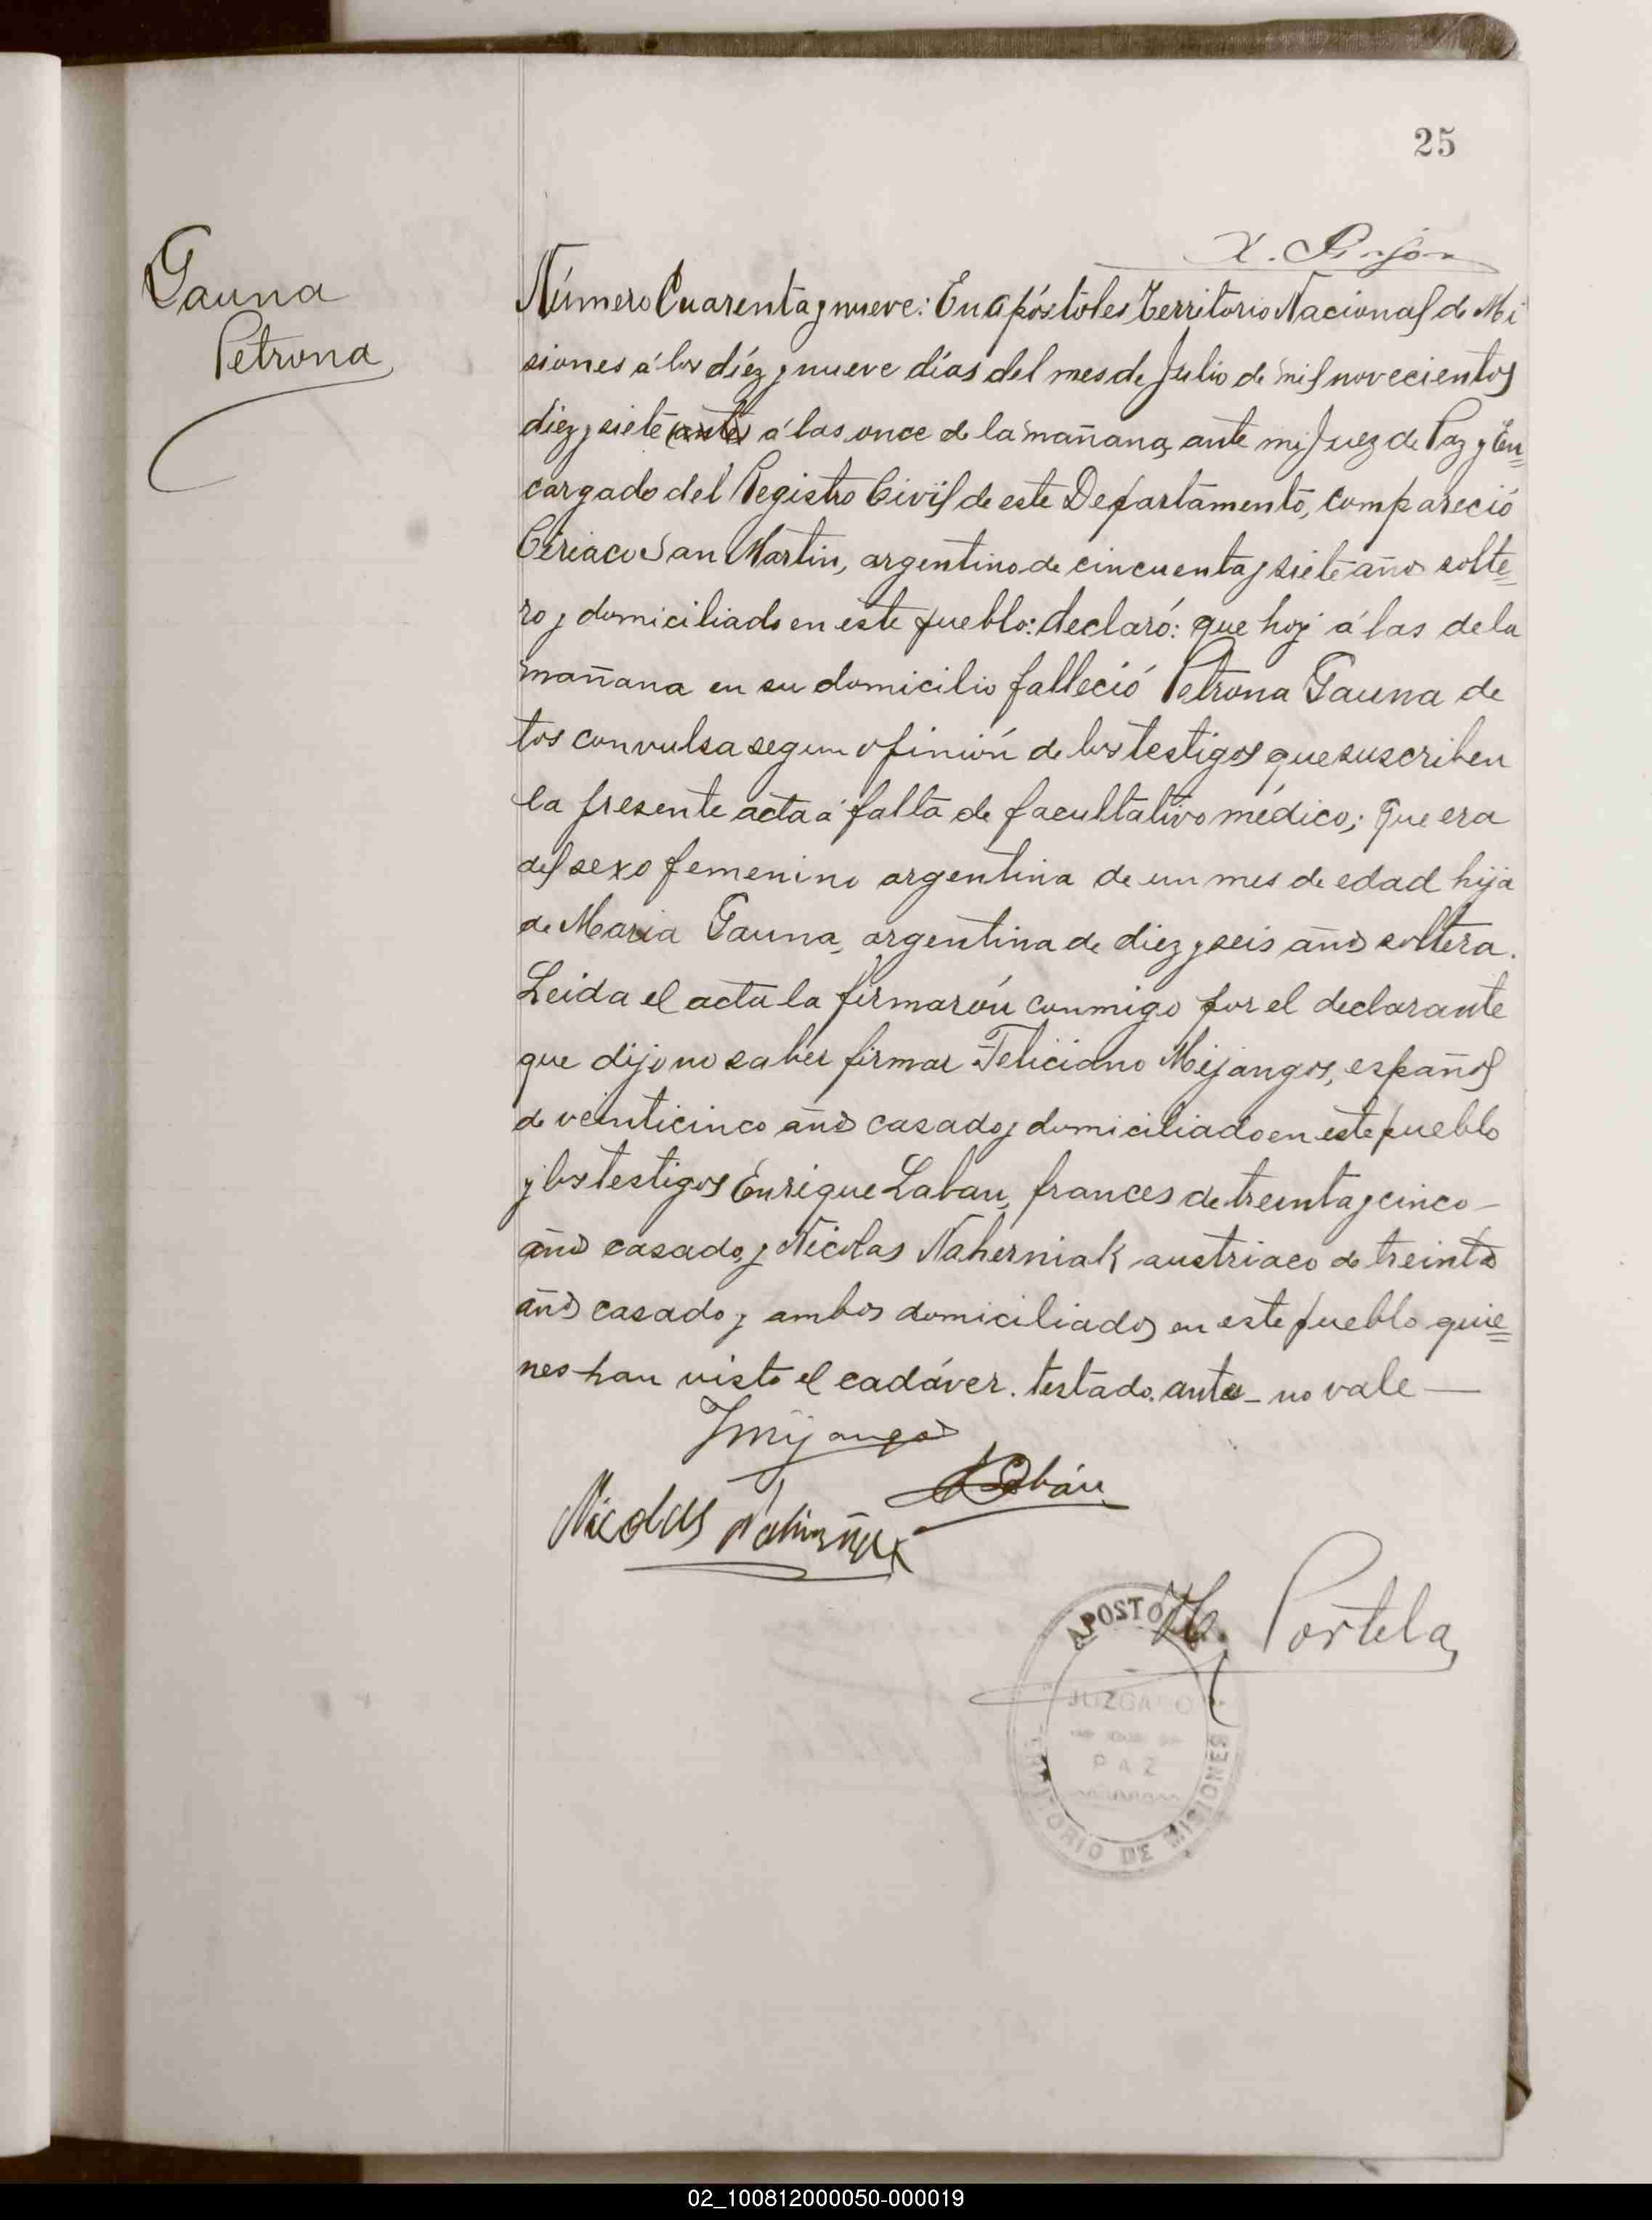 25
Gauna
Petrona
Número Cuarenta y nueve: En Apóstoles Territorio Nacional de Mi
siones á los diéz y nueve días del mes de Julio de mil novecientos
diez y siete antes á las once de la mañana, ante mi Juez de Paz y En=
cargado del Registro Civil de este Departamento, compareció
Ciriaco San Martin, argentino de cincuenta y siete años solte=
ro y domiciliado en este pueblo: declaró: que hoy á las de la
mañana en su domicilio falleció Petrona Gauna de
tos convulsa segun opinión de los testigos que suscriben
la presente acta á falta de facultativo médico; que era
del sexo femenino argentina de un mes de edad hija
de Maria Gauna, argentina de diez y seis años soltera.
Leida el acta la firmarón conmigo por el declarante
que dijo no saber firmar Feliciano Mijangos, español
de veinticinco años casado y domiciliado en este pueblo
y los testigos Enrique Labau, frances de treinta y cinco -
años casado, y Nicolas Naherniak austriaco de treinta
años casado y ambos domiciliados en este pueblo quie=
nes han visto el cadáver. testado. antes - no vale —
Fmijangos
Labáu
Nicolas
H. Portela
APOSTO
JUZGADO
PAZ
TERRITORIO DE MISIONES
02_100812000050-000019